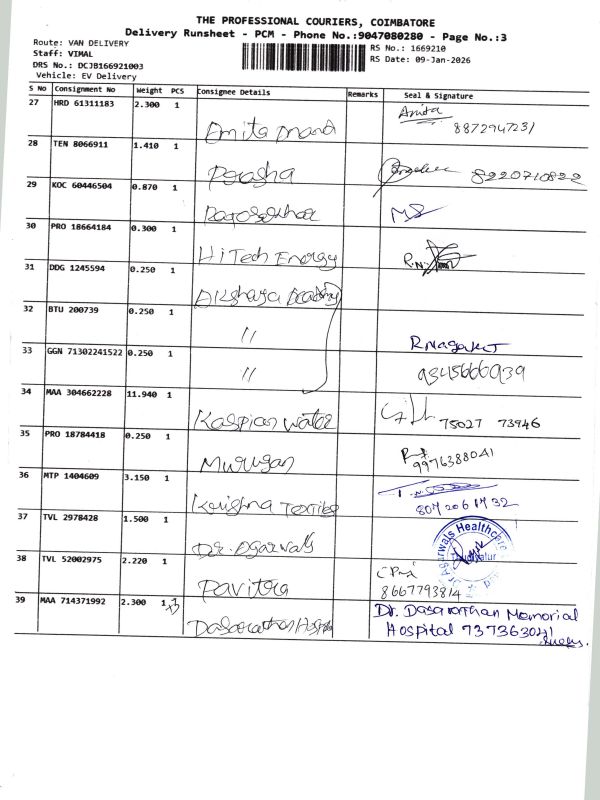 THE PROFESSIONAL COURIERS, COIMBATORE
Delivery Runsheet - PCM - Phone No.:9047080280 - Page No.:3
Route: VAN DELIVERY
Staff: VIMAL
DRS No.: DCJB166921003
Vehicle: EV Delivery
RS No.: 1669210
RS Date: 09-Jan-2026
S No Consignment No Weight PCS Consignee Details Remarks Seal & Signature
27 HRD 61311183 2.300 1 Amita Anand Anita 8872947231
28 TEN 8066911 1.410 1 8220710822
29 KOC 60446504 0.870 1
30 PRO 18664184 0.300 1 HiTech Energy R.N.
31 DDG 1245594 0.250 1 Akshaya Academy
32 BTU 200739 0.250 1 "
33 GGN 71302241522 0.250 1 " 9345666939
34 MAA 304662228 11.940 1 Kaspian water 75027 73946
35 PRO 18784418 0.250 1 Murugan 9976388041
36 MTP 1404609 3.150 1 Krishna Textiles
37 TVL 2978428 1.500 1 Dr. Agarwals Agarwals Healthcare
38 TVL 52002975 2.220 1 Pavitra 8667793814
39 MAA 714371992 2.300 1 Dasarathan Hospital Dr. Dasarathan Memorial
Hospital 737363041